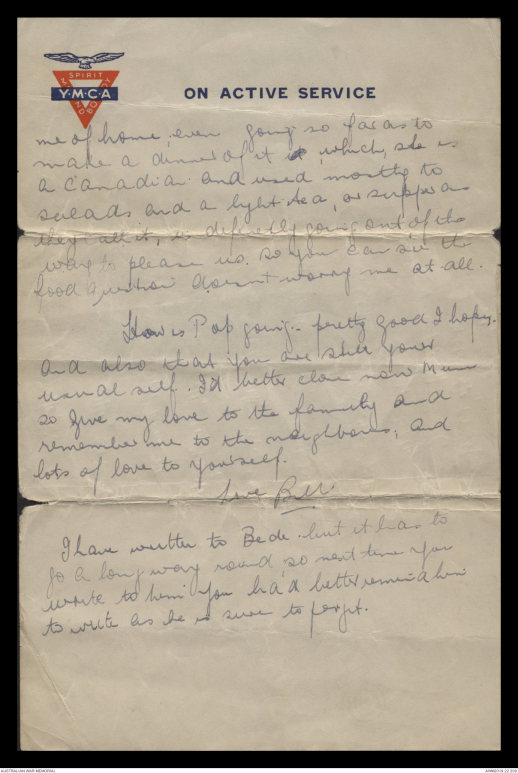 SPIRIT
MIND
BODY
Y·M·C·A
ON ACTIVE SERVICE
me of home, even going so far as to
make a dinner of it, which, she is
a Canadian and used mostly to
salads and a light tea, or supper as
they call it, is definitely going out of the
way to please us. So you can see the
food question doesn't worry me at all.
How is Pop going - pretty good I hope,
and also that you are still your
usual self. I'd better close now Mum
so give my love to the family and
remember me to the neighbours, and
lots of love to yourself.
Love Bill.
I have written to Bede but it has to
go a long way round, so next time you
write to him you had better remind him
to write as he is sure to forget.
AUSTRALIAN WAR MEMORIAL